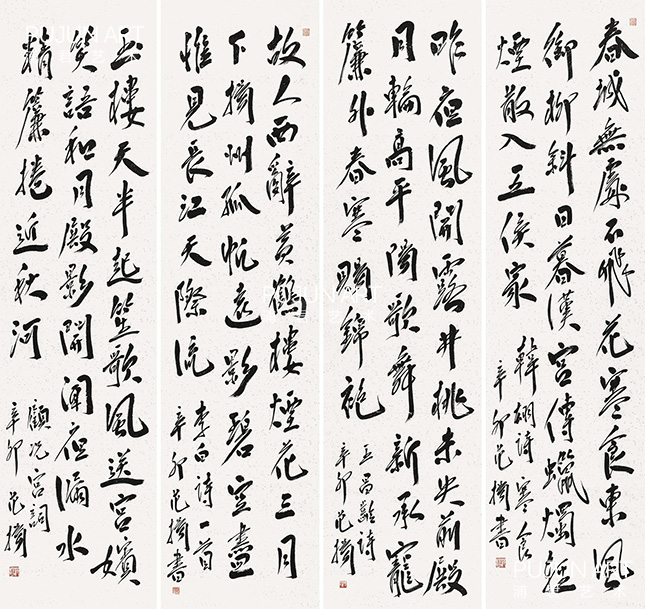 春城無處不飛花寒食東風
御柳斜日暮漢宮傳蠟燭輕
煙散入五侯家
韓翃詩寒食
辛卯范揚書
昨夜風開露井桃未央前殿
月輪高平陽歌舞新承寵
簾外春寒賜錦袍
王昌齡詩
辛卯范揚
故人西辭黃鶴樓煙花三月
下揚州孤帆遠影碧空盡
惟見長江天際流
李白詩一首
辛卯范揚書
玉樓天半起笙歌風送宮嬪
笑語和月殿影開聞夜漏水
精簾捲近秋河
顧況宮詞
辛卯范揚
PUJUN ART